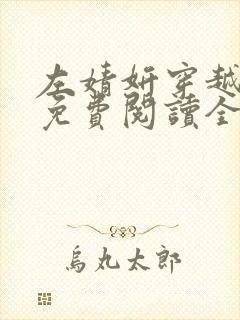 左婧妍穿越
免費閱讀全
烏丸太郎